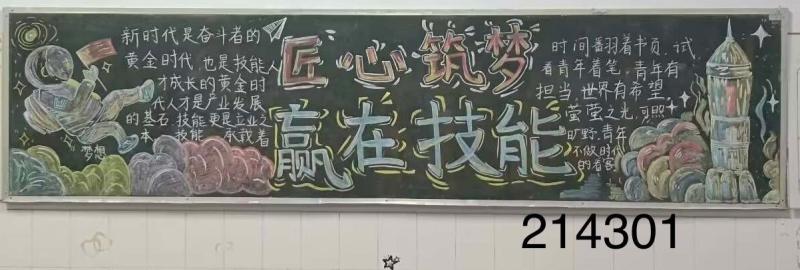 新时代是奋斗者的
黄金时代,也是技能人
才成长的黄金时
代人才是产业发展
的基石,技能更是立业之
本 技能 承载着
梦想
匠心筑梦
赢在技能
时间翻着书页,试
看青年着笔,青年有
担当,世界有希望
萤萤之光,可照
旷野,青年
不做时代
的看客
214301